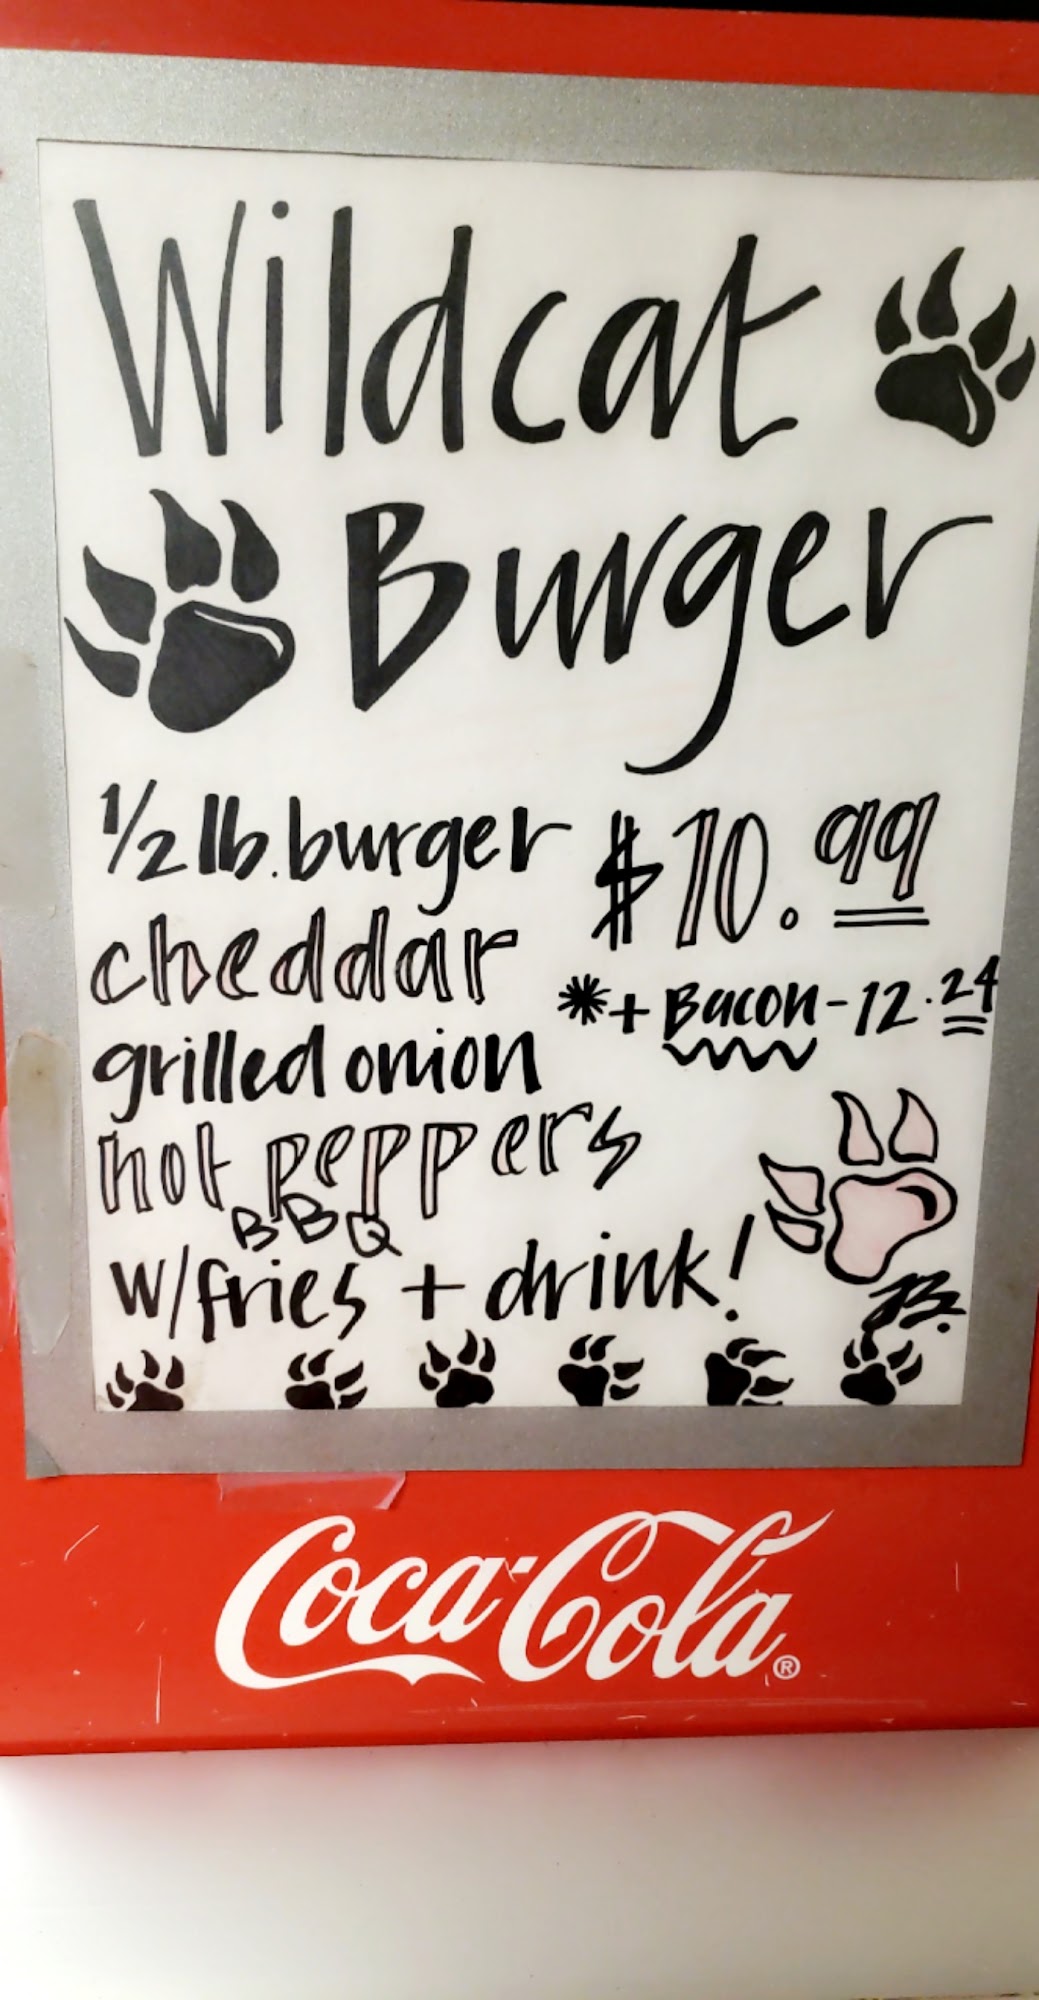 Wildcat
Burger
1/2 lb. burger
$10.99
cheddar
*+ Bacon - 12.24
grilled onion
hot peppers
BBQ
w/fries + drink!
JB.
Coca-Cola®